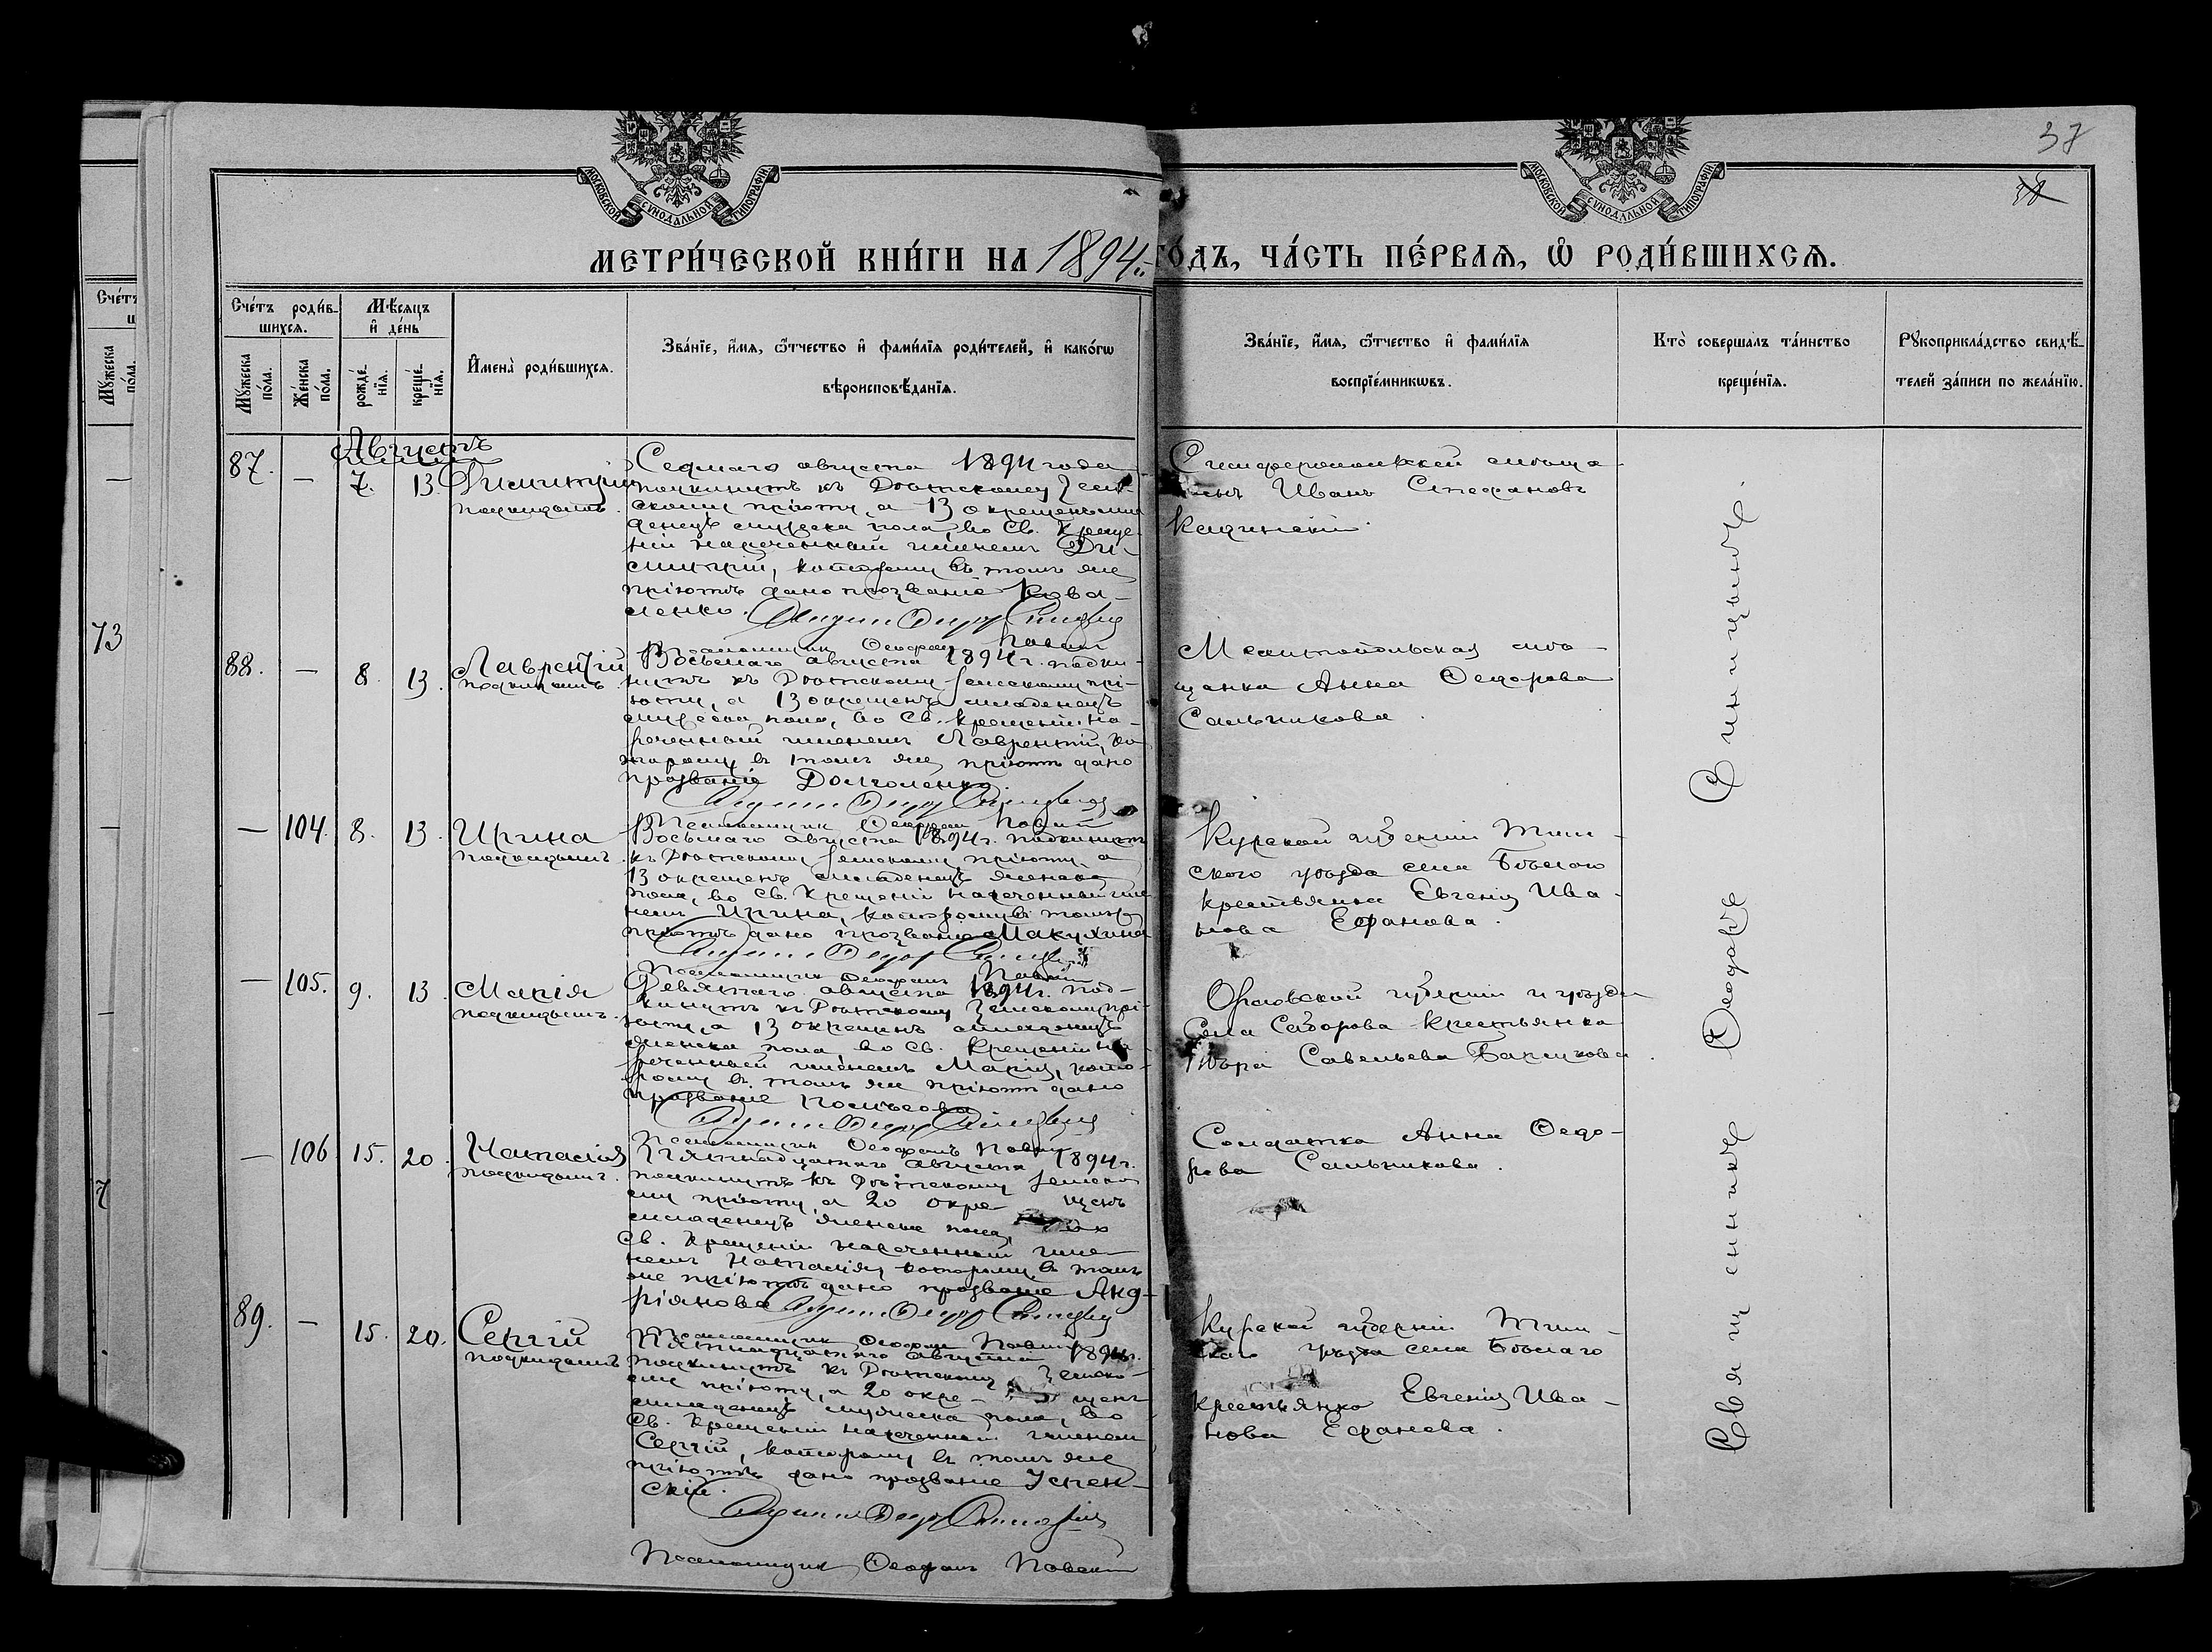 37
МОСКОВСКОЙ СѴНОДАЛЬНОЙ ТИПОГРАФІИ
МОСКОВСКОЙ СѴНОДАЛЬНОЙ ТИПОГРАФІИ
МЕТРИ́ЧЕСКОЙ КНИ́ГИ НА 1894 ГО́ДЪ, ЧА́СТЬ ПЕ́РВАѦ, Ѡ҆ РОДИ́ВШИХСѦ.
Сче́тъ роди́в-
шихсѧ.
Мꙋ́жеска по́ла.
Же́нска по́ла.
Мѣ́сѧцъ
и҆ де́нь
рожде́нїѧ.
креще́нїѧ.
И҆мена̀ роди́вшихсѧ.
Зва́нїе, и҆́мѧ, ѻ҆́тчество и҆ фами́лїѧ роди́телей, и҆ како́гѡ
вѣроисповѣ́данїѧ.
Зва́нїе, и҆́мѧ, ѻ҆́тчество и҆ фами́лїѧ
воспрїе́мникѡвъ.
Кто̀ совершалъ та́инство
креще́нїѧ.
Рꙋкоприкла́дство свидѣ́-
телей за́писи по жела́нїю.
Августъ
87. — 7. 13. Димитрій
подкидышъ.
Седмаго августа 1894 года
подкинутъ къ Дѣтскому Зем-
скому пріюту, а 13 окрещенъ мла-
денецъ мужеска пола, во Св. Креще-
ніи нареченный именемъ Ди-
митрій, которому въ томъ же
пріютѣ дано прозваніе Кова-
ленко.
Симферопольскій мѣща-
нинъ Иванъ Стефановъ
88. — 8. 13. Лаврентій
подкидышъ.
Псаломщикъ Ѳеофанъ
Восьмаго августа 1894 г. подки-
нутъ къ Дѣтскому Земскому прі-
юту, а 13 окрещенъ младенецъ
мужеска пола, во Св. Крещеніи на-
реченный именемъ Лаврентій, ко-
торому въ томъ же пріютѣ дано
прозваніе Долголенко.
Мелитопольская мѣ-
щанка Анна Ѳедорова
Сальникова.
— 104. 8. 13. Ирина
подкидышъ.
Псаломщикъ Ѳеофанъ
Восьмаго августа 1894 г. подкинутъ
къ Дѣтскому Земскому пріюту, а
13 окрещенъ младенецъ женска
пола, во Св. Крещеніи нареченный име-
немъ Ирина, которому въ томъ же
пріютѣ дано прозваніе Макухина
Курской губерніи Тим-
скаго уѣзда села Бѣлаго
крестьянка Евгенія Ива-
нова Ефанова.
— 105. 9. 13. Марія
подкидышъ.
Псаломщикъ Ѳеофанъ
Девятаго августа 1894 г. под-
кинутъ къ Дѣтскому Земскому прі-
юту, а 13 окрещенъ младенецъ
женска пола, во Св. Крещеніи на-
реченный именемъ Марія, кото-
рому въ томъ же пріютѣ дано
прозваніе
Орловской губерніи и уѣзда
села крестьянка
Савельева
— 106 15. 20. Наталія
подкидышъ.
Псаломщикъ Ѳеофанъ
Пятнадцатаго августа 1894 г.
подкинутъ къ Дѣтскому Земско-
му пріюту, а 20 окре щенъ
младенецъ женска пола, во
Св. Крещеніи нареченный име-
немъ Наталія, которому въ томъ
же пріютѣ дано прозваніе Анд-
ріянова
Солдатка Анна Ѳедо-
рова Сальникова.
89. — 15. 20. Сергій
подкидышъ
Псаломщикъ Ѳеофанъ
Пятнадцатаго августа 1894 г.
подкинутъ къ Дѣтскому Земско-
му пріюту, а 20 окре- щенъ
младенецъ мужеска пола, во
Св. Крещеніи нареченный именемъ
Сергій, которому въ томъ же
пріютѣ дано прозваніе Успен-
скій.
Псаломщикъ Ѳеофанъ
Курской губерніи Тим-
скаго уѣзда села Бѣлаго
крестьянка Евгенія Ива-
нова Ефанова.
Священникъ Ѳеодоръ Синицынъ.
Сче́тъ
Мꙋ́жеска по́ла.
73
7